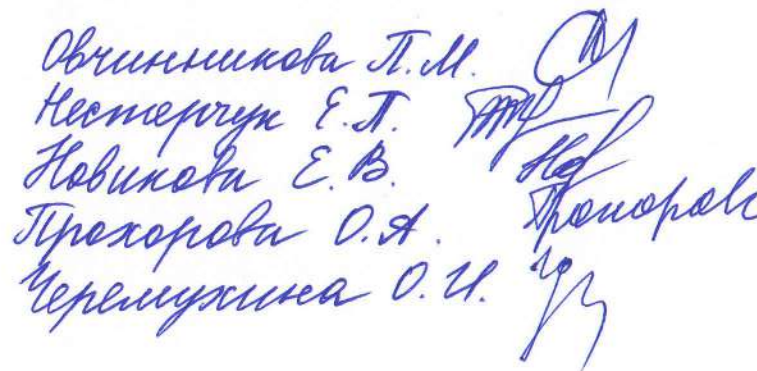 Овчинникова Л.М.
Нестерчук Е.П.
Новикова Е.В.
Прохорова О.А. Прохоров
Черемухина О.И.